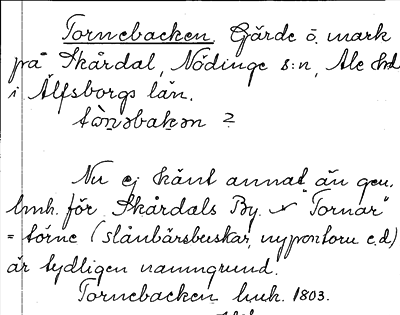 Tornebacken. Gärde o. mark
på Skårdal, Nödinge s:n, Ale hd
i Älfsborgs län.
tòṇəbakən 2
Nu ej känt annat än gen.
lmk. för Skårdals By. "Tornar"
= tórne (slånbärsbuskar, nypontorn e.d.)
är tydligen namngrund.
Tornebacken lmk. 1803.